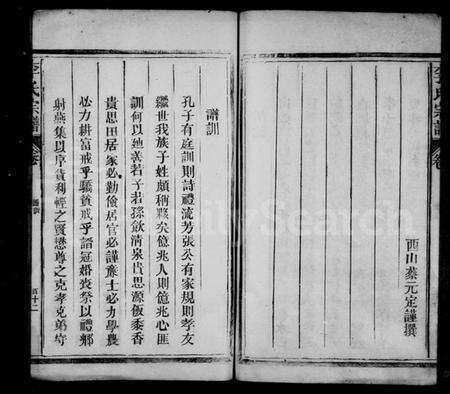 西山蔡元定謹撰
譜訓
孔子有庭訓則詩禮流芳張公有家規則孝友
繼世我族子姓頗稱夥矣億兆人則億兆心匪
訓何以迪善若子若孫飲清泉思源飯黍香
貴思田居家必勤儉居官必謹廉士必力學農
必力耕富戒乎驕貧戒乎諂冠婚喪祭以禮鄉
射燕集以序貨利輕之賢懋尊之克孝克弟守
氏宗譜
卷